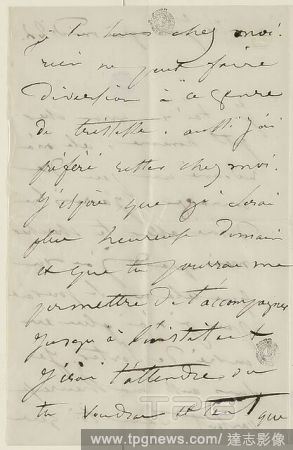 chez moi.
rien ne peut faire
diversion à ce genre
de tristesse. aussi j'ai
préféré rester chez moi.
J'espère que je serai
plus heureuse demain
et que tu pourras me
permettre de t'accompagner
jusqu'à l'institut
J'irai t'attendre où
tu voudras et que
TPG
www.tpgnews.com / 達志影像